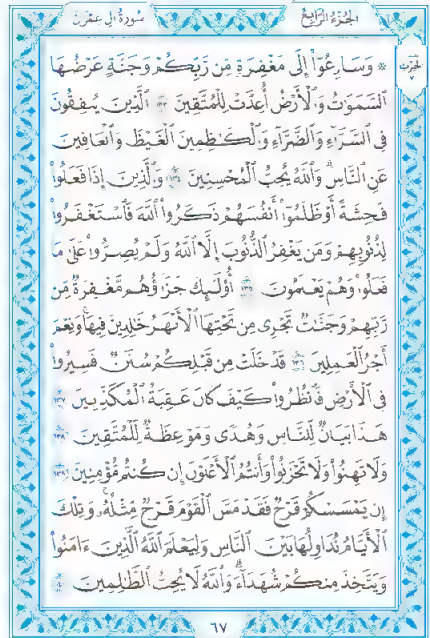 سُورَةُ آلِ عِمْرَان
الجُزْءُ الرَّابِعُ
۞ وَسَارِعُوٓاْ إِلَىٰ مَغْفِرَةٖ مِّن رَّبِّكُمْ وَجَنَّةٍ عَرْضُهَا
ٱلسَّمَٰوَٰتُ وَٱلْأَرْضُ أُعِدَّتْ لِلْمُتَّقِينَ ١٣٣ ٱلَّذِينَ يُنفِقُونَ
فِي ٱلسَّرَّآءِ وَٱلضَّرَّآءِ وَٱلْكَٰظِمِينَ ٱلْغَيْظَ وَٱلْعَافِينَ
عَنِ ٱلنَّاسِۗ وَٱللَّهُ يُحِبُّ ٱلْمُحْسِنِينَ ١٣٤ وَٱلَّذِينَ إِذَا فَعَلُواْ
فَٰحِشَةً أَوْ ظَلَمُوٓاْ أَنفُسَهُمْ ذَكَرُواْ ٱللَّهَ فَٱسْتَغْفَرُواْ
لِذُنُوبِهِمْ وَمَن يَغْفِرُ ٱلذُّنُوبَ إِلَّا ٱللَّهُ وَلَمْ يُصِرُّواْ عَلَىٰ مَا
فَعَلُواْ وَهُمْ يَعْلَمُونَ ١٣٥ أُوْلَٰٓئِكَ جَزَآؤُهُم مَّغْفِرَةٌ مِّن
رَّبِّهِمْ وَجَنَّٰتٌ تَجْرِي مِن تَحْتِهَا ٱلْأَنْهَٰرُ خَٰلِدِينَ فِيهَاۚ وَنِعْمَ
أَجْرُ ٱلْعَٰمِلِينَ ١٣٦ قَدْ خَلَتْ مِن قَبْلِكُمْ سُنَنٌ فَسِيرُواْ
فِي ٱلْأَرْضِ فَٱنظُرُواْ كَيْفَ كَانَ عَٰقِبَةُ ٱلْمُكَذِّبِينَ ١٣٧
هَٰذَا بَيَانٌ لِّلنَّاسِ وَهُدًى وَمَوْعِظَةٌ لِّلْمُتَّقِينَ ١٣٨
وَلَا تَهِنُواْ وَلَا تَحْزَنُواْ وَأَنتُمُ ٱلْأَعْلَوْنَ إِن كُنتُم مُّؤْمِنِينَ ١٣٩
إِن يَمْسَسْكُمْ قَرْحٌ فَقَدْ مَسَّ ٱلْقَوْمَ قَرْحٌ مِّثْلُهُۥۚ وَتِلْكَ
ٱلْأَيَّامُ نُدَاوِلُهَا بَيْنَ ٱلنَّاسِ وَلِيَعْلَمَ ٱللَّهُ ٱلَّذِينَ ءَامَنُواْ
وَيَتَّخِذَ مِنكُمْ شُهَدَآءَۗ وَٱللَّهُ لَا يُحِبُّ ٱلظَّٰلِمِينَ ١٤٠
٦٧